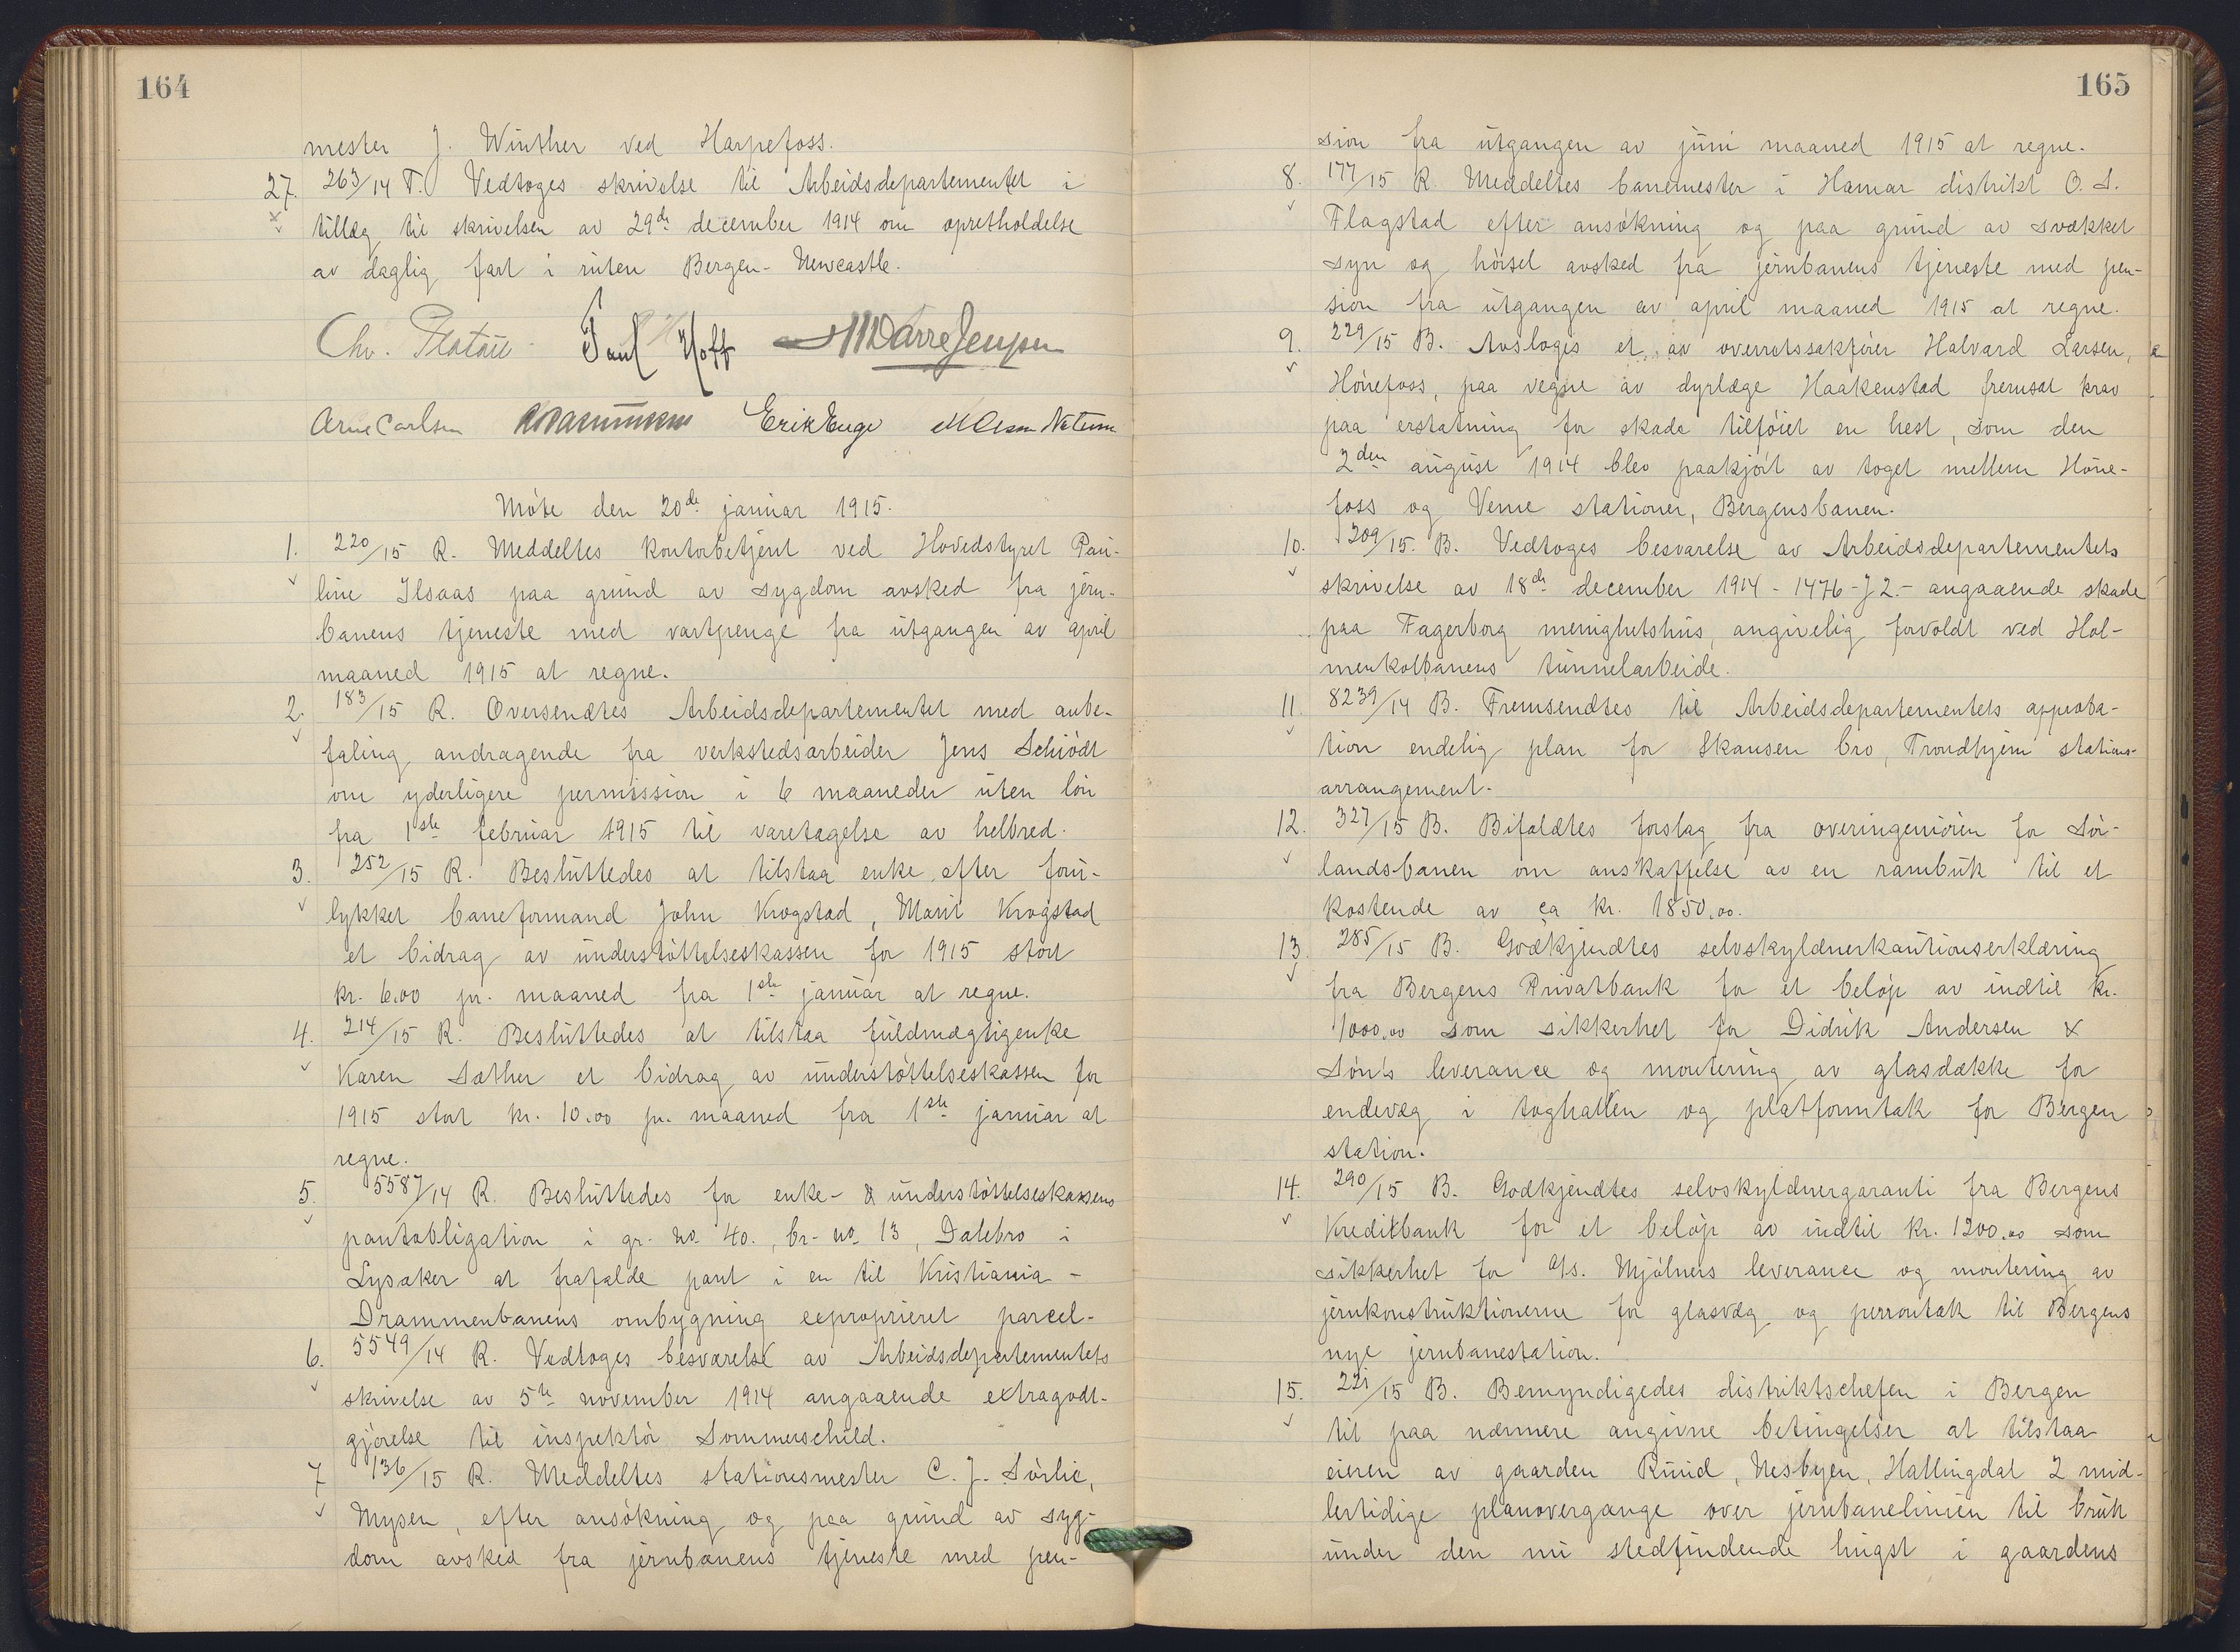 164
mester J. Winther ved Harpefoss.
27. 263/14 T. Vedtoges skrivelse til Arbeidsdepartementet i
tillæg til skrivelsen av 29de december 1914 om opretholdelse
av daglig fart i ruten Bergen - Newcastle.
Chr. Platou Paul Hoff
Arne Carlsen Erik Enge
Møte den 20de januar 1915.
1. 220/15 R. Meddeltes kontorbetjent ved Hovedstyret Pau-
line Ilsaas paa grund av sygdom avsked fra jern-
banens tjeneste med vartpenge fra utgangen av april
maaned 1915 at regne.
2. 183/15 R. Oversendtes Arbeidsdepartementet med anbe-
faling andragende fra verkstedsarbeider Jens Schiödt
om yderligere permission i 6 maaneder uten løn
fra 1ste februar 1915 til varetagelse av helbred.
3. 252/15 R. Besluttedes at tilstaa enke efter foru-
lykket baneformand John Krogstad, Marit Krogstad
et bidrag av understøttelseskassen for 1915 stort
kr. 6.00 pr. maaned fra 1ste januar at regne.
4. 214/15 R. Besluttedes at tilstaa fuldmægtigenke
Karen Sæther et bidrag av understøttelseskassen for
1915 stort kr. 10.00 pr. maaned fra 1ste januar at
regne.
5. 5587/14 R. Besluttedes for enke- & understøttelseskassens
pantobligation i gr. no. 40., br. no. 13, Dalebro i
Lysaker at frafalde pant i en til Kristiania -
Drammenbanens ombygning exproprieret parcel.
6. 5549/14 R. Vedtoges besvarelse av Arbeidsdepartementets
skrivelse av 5te november 1914 angaaende extragodt-
gjørelse til inspektør Sommerschild.
7 136/15 R. Meddeltes stationsmester C. J. Sørlie,
Mysen, efter ansøkning og paa grund av syg-
dom avsked fra jernbanens tjeneste med pen-
165
sion fra utgangen av juni maaned 1915 at regne.
8. 177/15 R. Meddeltes banemester i Hamar distrikt O. S.
Flagstad efter ansøkning og paa grund av svækket
syn og hørsel avsked fra jernbanens tjeneste med pen-
sion fra utgangen av april maaned 1915 at regne.
9. 229/15 B. Avsloges et av overretssakfører Halvard Larsen,
Hønefoss, paa vegne av dyrlæge Haakenstad fremsat krav
paa erstatning for skade tilføiet en hest, som den
2den august 1914 blev paakjørt av toget mellem Høne-
foss og Veme stationer, Bergensbanen.
10. 209/15. B. Vedtoges besvarelse av Arbeidsdepartementets
skrivelse av 18de december 1914 - 1476 - J 2. - angaaende skade
paa Fagerborg menighetshus, angivelig forvoldt ved Hol-
menkolbanens tunnelarbeide.
11. 8239/14 B. Fremsendtes til Arbeidsdepartementets approba-
tion endelig plan for Skansen bro, Trondhjem stations-
arrangement.
12. 327/15 B. Bifaldtes forslag fra overingeniøren for Sør-
landsbanen om anskaffelse av en rambuk til et
kostende av ca kr. 1850.00.
13. 285/15 B. Godkjendtes selvskyldnerkautionserklæring
fra Bergens Privatbank for et beløp av indtil kr.
1000.00 som sikkerhet for Didrik Andersen &
Søn's leverance og montering av glasdække for
endevæg i toghallen og platformtak for Bergen
station.
14. 290/15 B. Godkjendtes selvskyldnergaranti fra Bergens
Kreditbank for et beløp av indtil kr. 1200.00 som
sikkerhet for A/s. Mjølners leverance og montering av
jernkonstruktionerne for glasvæg og perrontak til Bergens
nye jernbanestation.
15. 221/15 B. Bemyndigedes distriktschefen i Bergen
til paa nærmere angivne betingelser at tilstaa
eieren av gaarden Ruud, Nesbyen, Hallingdal 2 mid-
lertidige planovergange over jernbanelinien til bruk
under den nu stedfindende hugst i gaardens